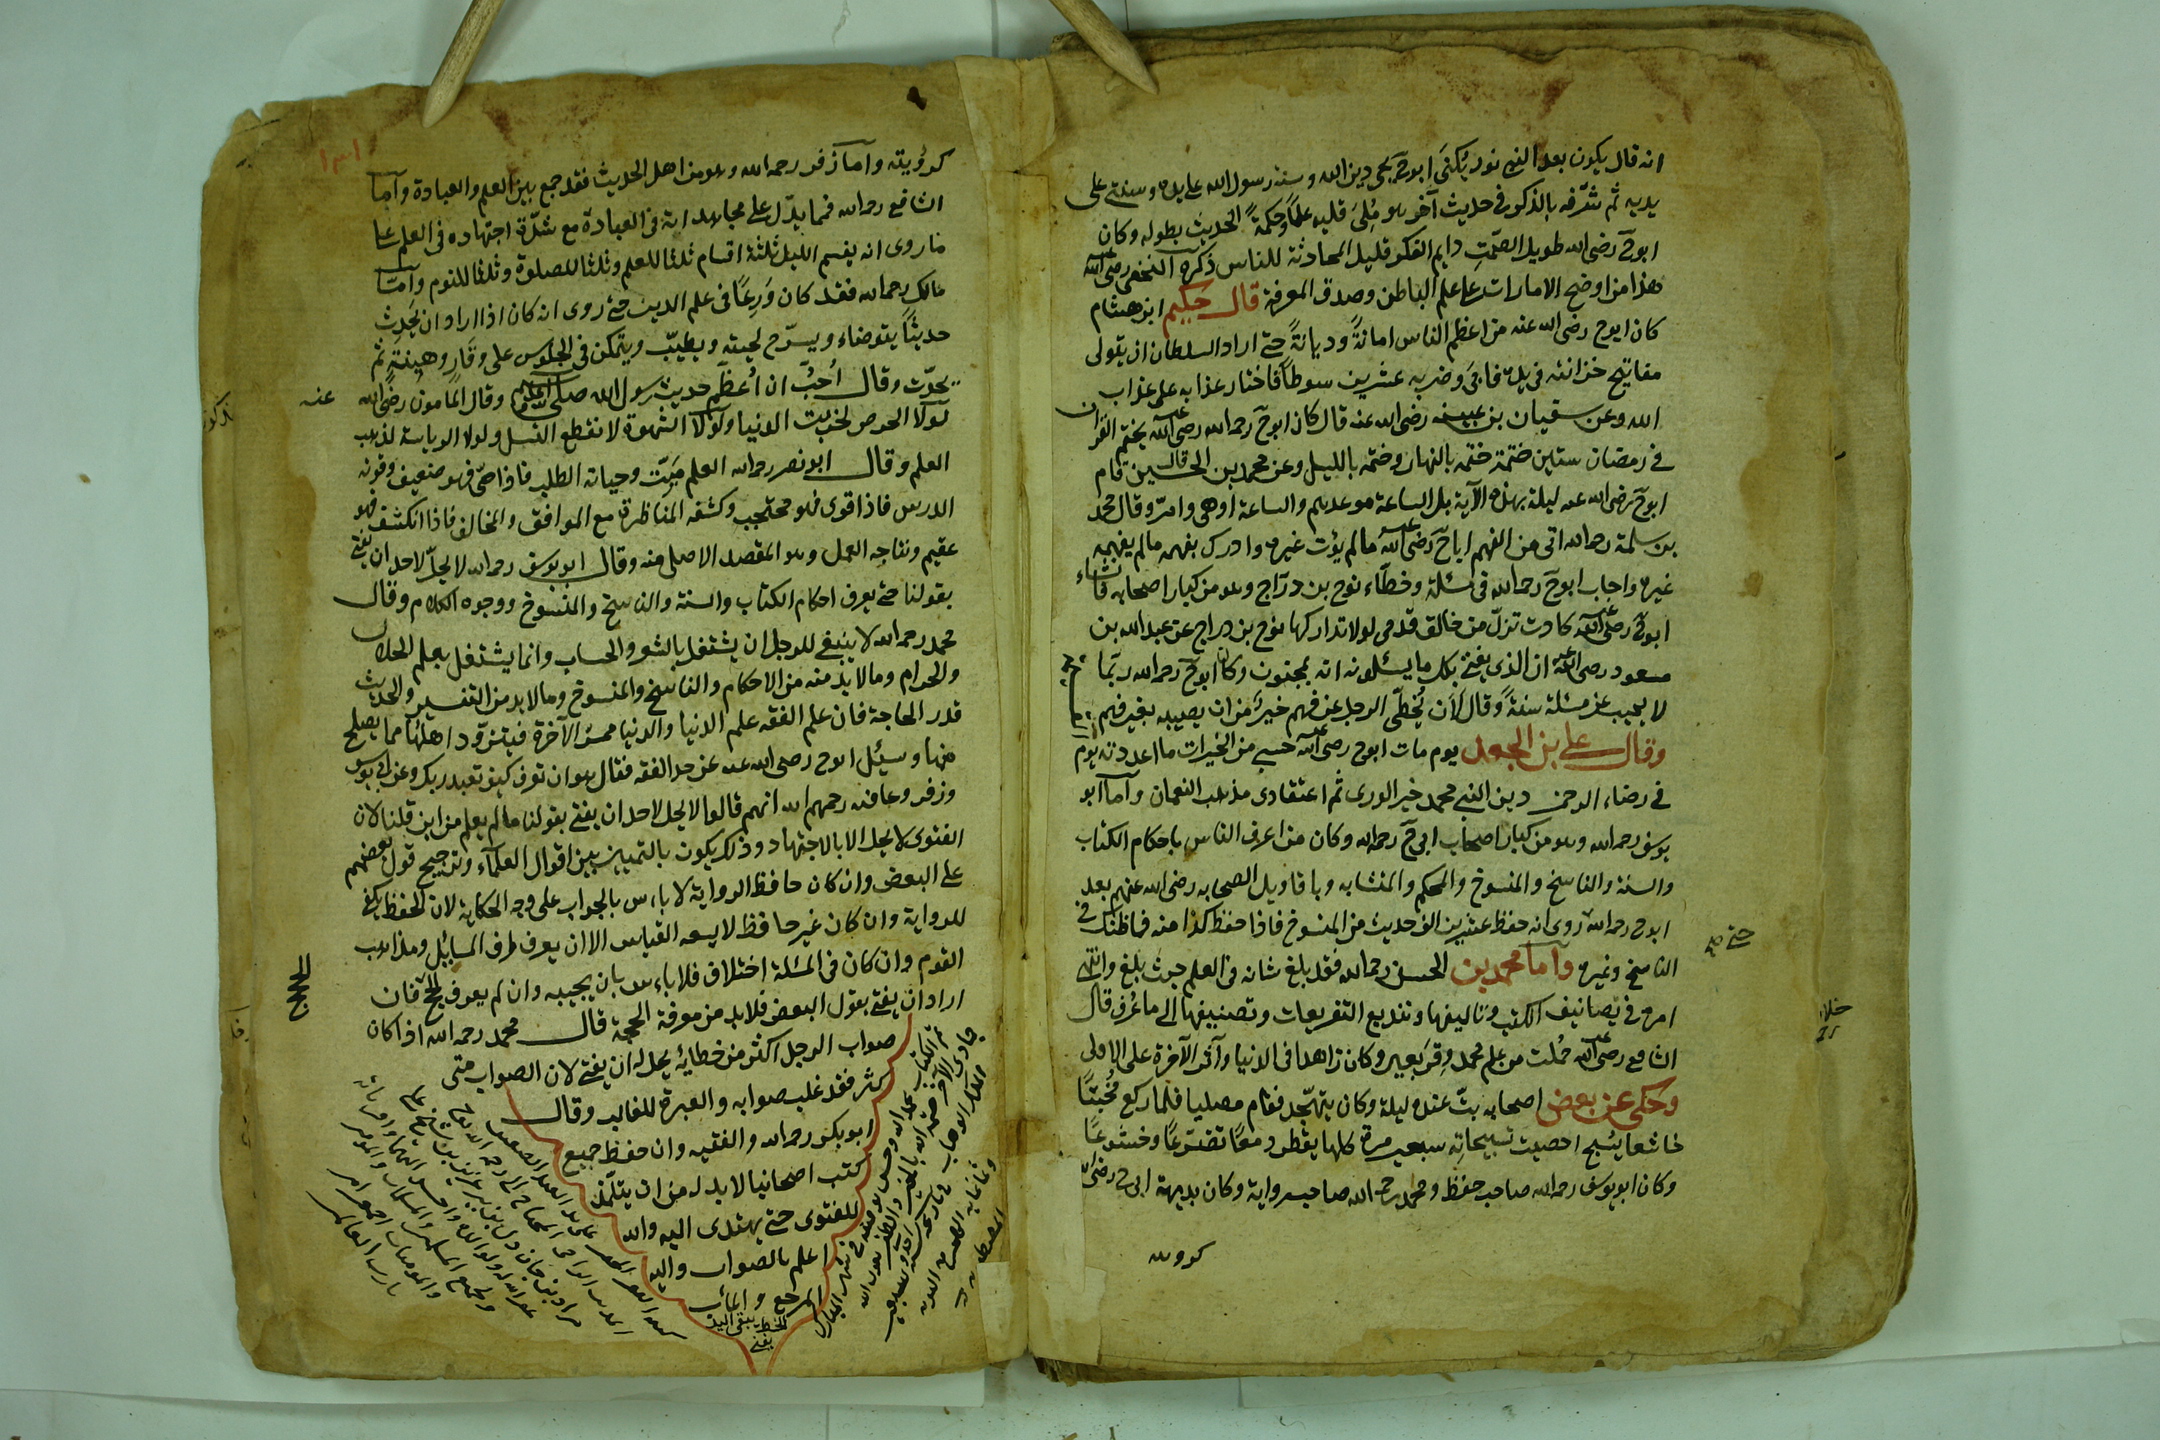 انه قال يكون بعد النبي نور يُكنَى ابوح يحيى دين الله وسنة رسول الله على يده وسنتي على
يديه ثم شرّفه بالذكر في حديث آخر هو مُلِئَ قلبه علماً وحكمةً الحديث بطوله وكان
ابوح رضى الله طويل الصَمتِ دايم الفكر قليل المحادثة للناس ذكره النخعى رضى الله
هذا من اوضح الامارات على علم الباطن وصدق المعرفة قال حكيم ابن هشام
كان ابوح رضى الله عنه من اعظم الناس امانةً وديانةً حتى اراد السلطان ان يتولى
مفاتيح خزائنه في يده فابَى وضربه عشرين سوطاً فاختار عذابه على عذاب
الله وعن سفيان بن عيينه رضى الله عنه قال كان ابوح رحمه الله رضى الله عنه يختم القران
في رمضان ستين ختمة ختمه بالنهار وختمه بالليل وعن محمد بن الحسين قال قام
ابوح رضى الله عنه ليلة بهذه الآية بل الساعة موعدهم والساعة ادهى وامرّ وقال محمد
بن سلمة رحمه الله اتى من الفهم اباح رضى الله عنه ما لم يؤت غيره وادرك بفهمه ما لم يفهمه
غيره واجاب ابوح رحمه الله في مسئلة وخطّاء نوح بن درّاج وهو من كبار اصحابه فانشاء
ابوح رضى الله عنه كادت تزلّ من خالق قدمى لولا تداركها نوح بن دراج عن عبد الله بن
مسعود رضى الله عنه ان الذى يفتى بكل ما يسئلونه انه لمجنون وكان ابوح رحمه الله ربّما
لا يجيب عن مسئلة سنةً وقال لَاَن يُخطّى الرجل عن فهم خيرٌ من ان يصيبه بغير فهم
وقال على بن الجعد يوم مات ابوح رضى الله عنه حسبى من الخيرات ما اعددته يوم
في رضاء الرحمن دين النبي محمد خير الورى ثم اعتقادى مذهب النعمان وآما ابو
يوسف رحمه الله وهو من كبار اصحاب ابى ح رحمه الله وكان من اعرف الناس باحكام الكتاب
والسنة والناسخ والمنسوخ والمحكم والمتشابه وباقاويل الصحابه رضى الله عنهم بعد
ابوح رحمه الله روى انه حفظ عشرين الف حديث من المنسوخ فاذا حفظ كذا منه فما ظنك في
الناسخ وغيره وآما محمد بن الحسن رحمه الله فقد بلغ شانه في العلم حيث بلغ وانتهى
امره في تصانيف الكتب وتاليفها وتفريع التفريعات وتصنيفها الى ما عُرف قال
الشافعى رضى الله عنه حُملت من علم محمد وقر بعير وكان زاهدا فى الدنيا وآثر الآخرة على الاولى
وحكى عن بعض اصحابه بتّ عنده ليلة وكان يتهجّد فقام مصليا فلما ركع مُخبتًا
خاشعا يسّبح احصيت تسبيحاته سبعين مرة كلها يقطر دمعًا تضرّعًا وخشوعًا
وكان ابو يوسف رحمه الله صاحب حفظ ومحمد رحمه الله صاحب رواية وكان بديهة ابى ح رضى الله
كرويته
حتى صح
كرؤيته وآما زفر رحمه الله وهو من اهل الحديث فقد جمع بين العلم والعبادة وآما
الشافعى رحمه الله فما يدّل على مجاهداته في العبادة مع شدّة اجتهاده في العلم على
ما روى انه يقسم الليل ثلثة اقسام ثلثا للعلم وثلثا للصلوة وثلثا للنوم وآما
مالك رحمه الله فقد كان وَرِعًا في علم الدين حتى روى انه كان اذا اراد ان يُحَدِث
حديثًا يتوضاء ويسرّح لحيته ويطيّب ويتمكن في الجلوس على وقارٍ وهيبةٍ ثم
يحدّث وقال اُحبّ ان اُعظّم حديث رسول الله صلى الله عليه وسلم وقال المامون رضى الله عنه
لولا الحرص لخربت الدنيا ولولا الشهوة لانقطع النسل ولولا الرياسة لذهب
العلم وقال ابو نصر رحمه الله العلم ميّت وحياته الطلب فاذا حىّ فهو ضعيف وقوته
الدرس فاذا قوى فهو محتجب وكشفه المناظرة مع الموافق والمخالف فاذا انكشف فهو
عقيم ونتاجه العمل وهو المقصد الاصلى منه وقال ابو يوسف رحمه الله لا يحلّ لاحد ان يفتى
بقولنا حتى يعرف احكام الكتاب والسنة والناسخ والمنسوخ ووجوه الكلام وقال
محمد رحمه الله لا ينبغى للرجل ان يشتغل بالشعر والحساب وانما يشتغل بعلم الحلال
والحرام وما لا بد منه من الاحكام والناسخ والمنسوخ وما لا بد من التفسير والحديث
قدر الحاجة فان علم الفقه علم الدنيا والدنيا ممرّ الآخرة فيتزوّد اهلها مما يصلح
منها وسيئل ابوح رضى الله عنه عن حد الفقه فقال هو ان تعرف كيف تعبد ربك وعن ابى يوسف
وزفر وعافية رحمهم الله انهم قالوا لا يحل لاحد ان يفتى بقولنا ما لم يعلم من اين قلنا لان
الفتوى لا يحل الا بالاجتهاد وذلك يكون بالتمييز بين اقوال العلمآء وترجيح قول بعضهم
على البعض وان كان حافظ الرواية لا باس بالجواب على وجه الحكاية لان الحفظ يكفى
للرواية وان كان غير حافظ لا يسعه القياس الا ان يعرف طرف المسايل ومذاهب
القوم وان كان في المسئلة اختلاف فلا باس بان يجيبه وان لم يعرف الحجج فان
اراد ان يفتى بقول البعض فلا بد من معرفة الحجة قال محمد رحمه الله اذا كان
صواب الرجل اكثر من خطايه يحل له ان يفتى لان الصواب متى
كثر فقد غلب صوابه والعبرة للغالب وقال
ابو بكر رحمه الله والفقيه وان حفظ جميع
كتب اصحابنا لا بد له من ان يتلّمذ
للفتوى حتى يهتدى اليه والله
اعلم بالصواب واليه
المرجع والمأب
الخط يبقى
الحجج